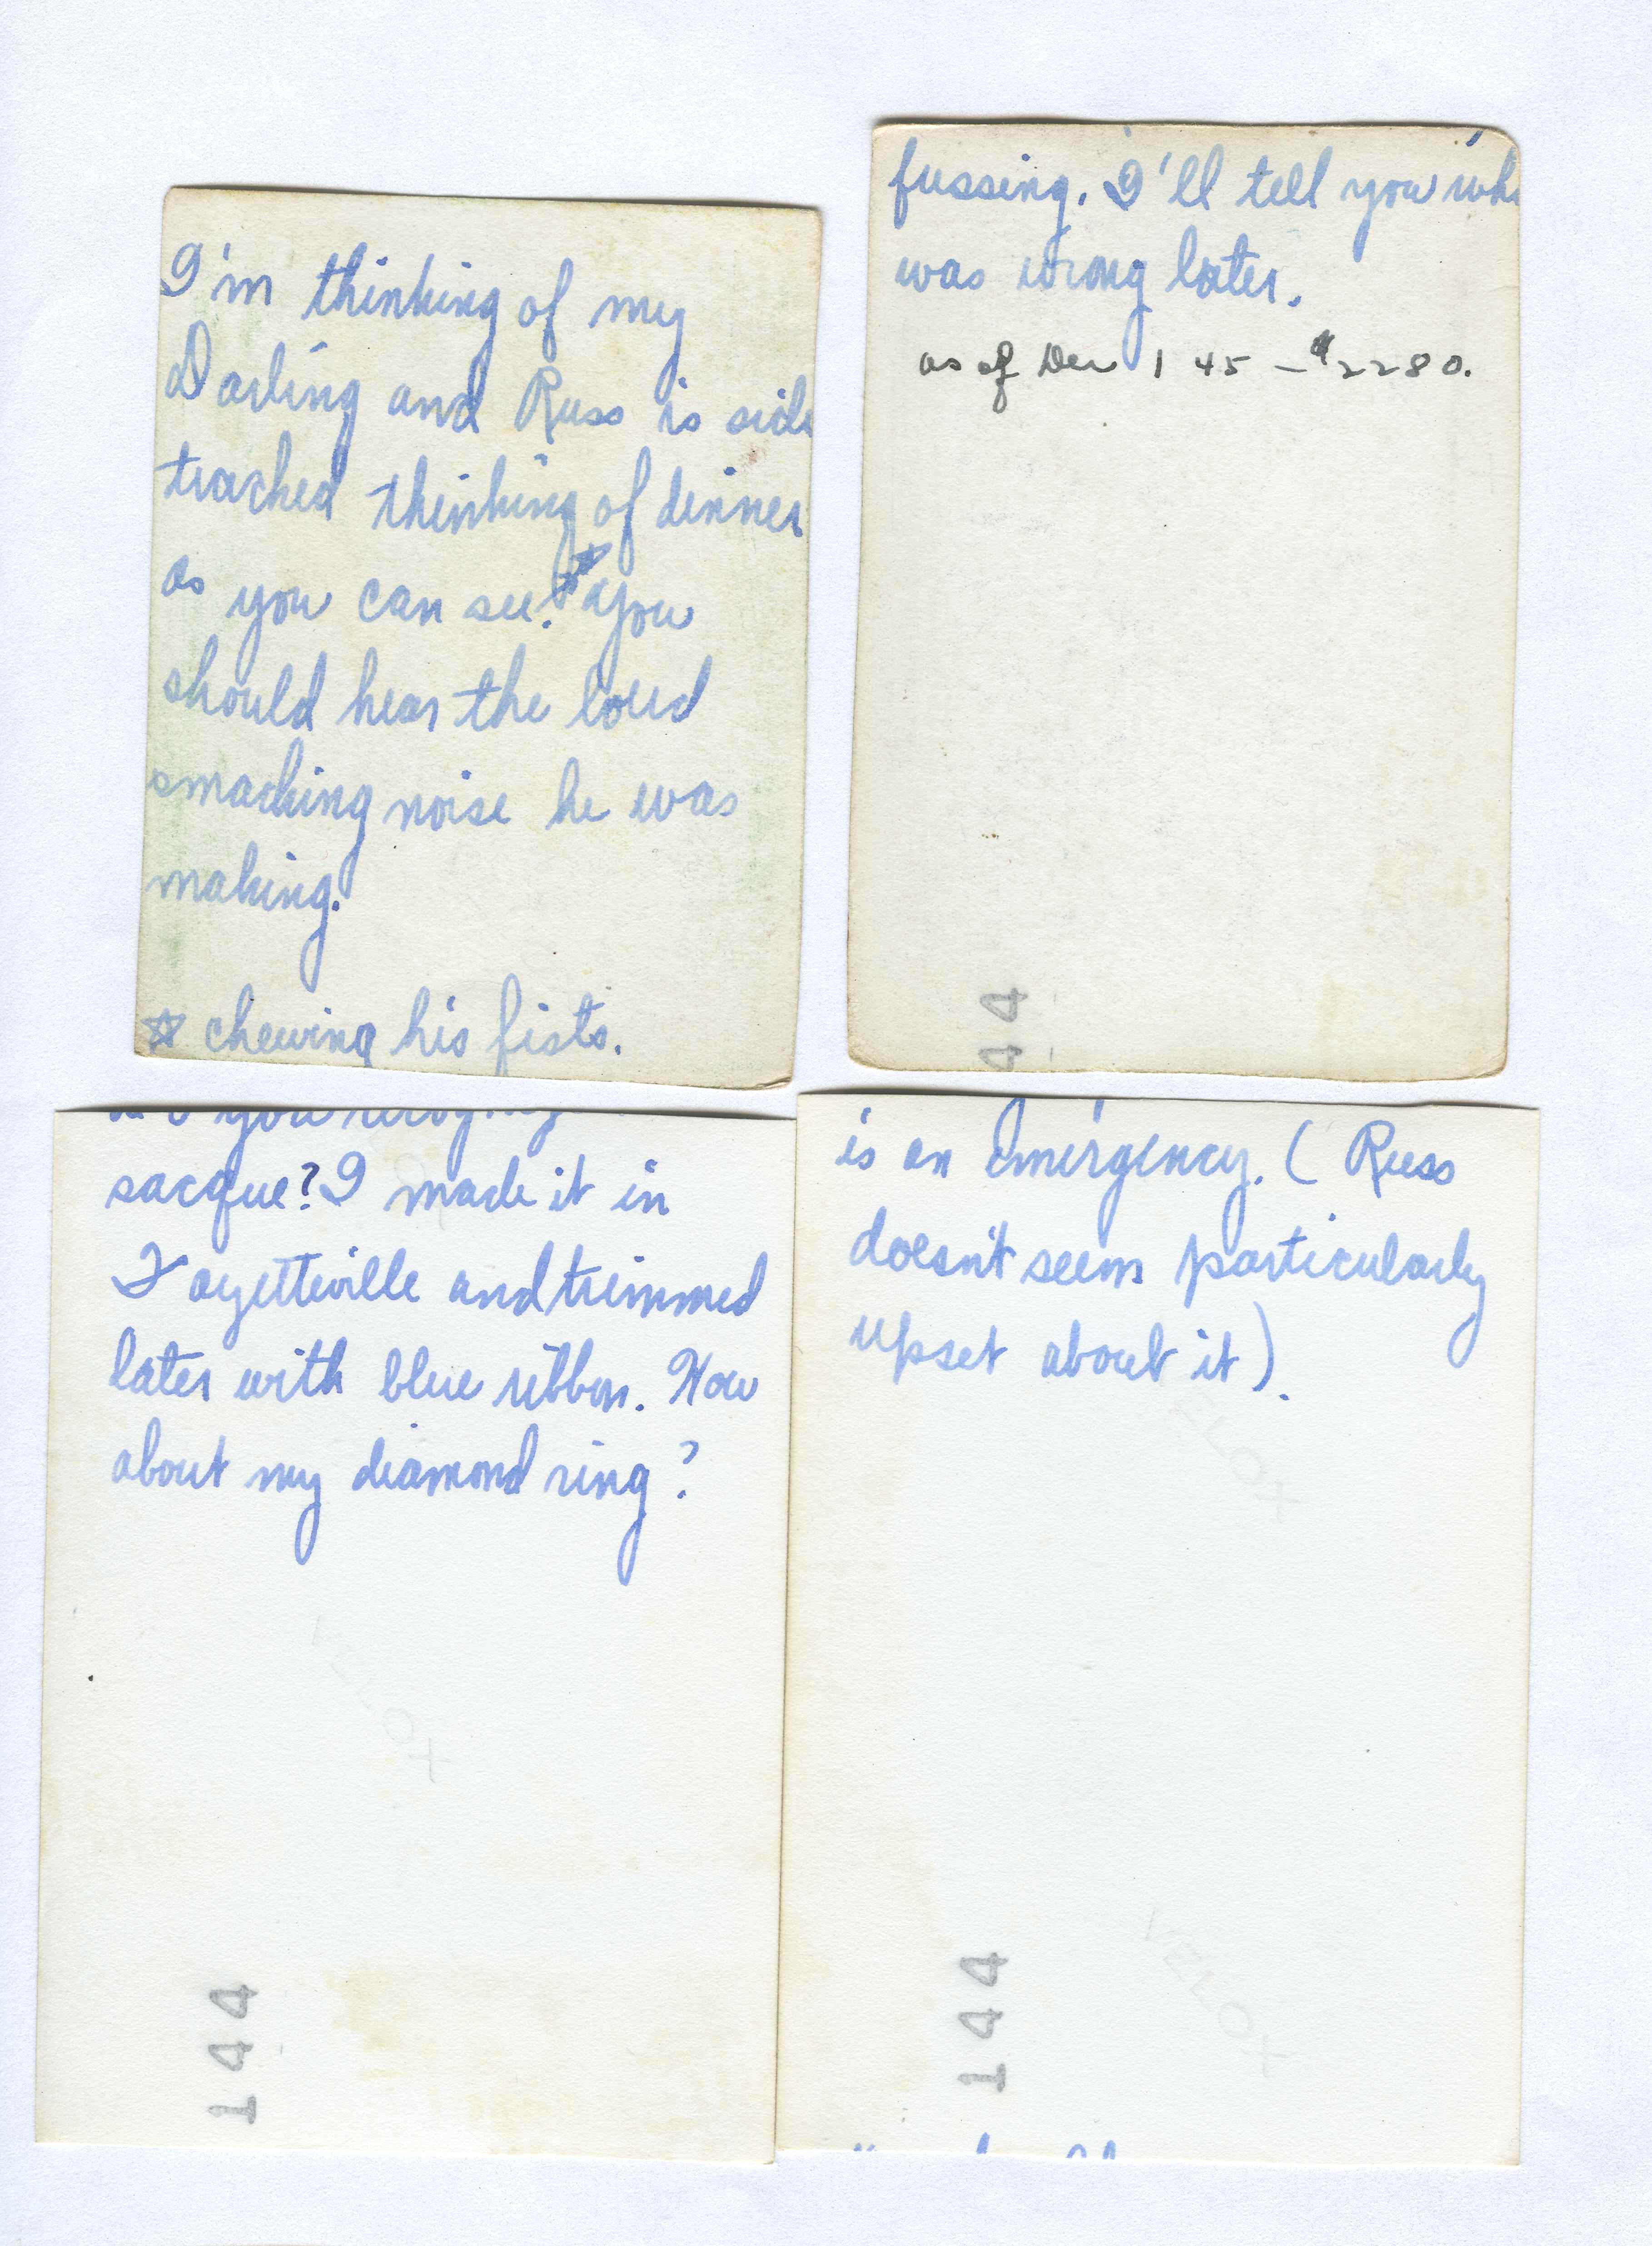 I'm thinking of my
Darling and Russ is side
tracked thinking of dinner
as you can see.☆ You
should hear the loud
smacking noise he was
making.
☆ chewing his fists.
fussing. I'll tell you wh
was wrong later.
as of Dec 1 45 — $2280.
44
you
sacque? I made it in
Fayetteville and trimmed
later with blue ribbon. How
about my diamond ring?
144
is an emergency. (Russ
doesn't seem particularly
upset about it).
144